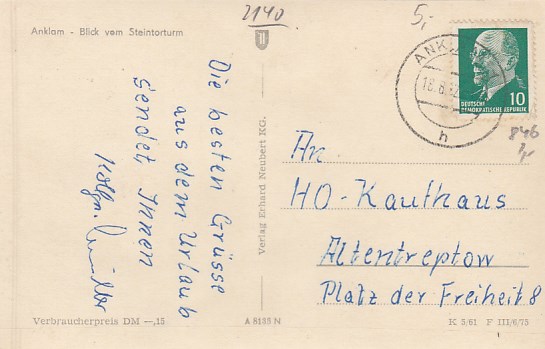 2140
5,-
Anklam - Blick vom Steintorturm
Die besten Grüsse
aus dem Urlaub
sendet Ihnen
Müller
Verlag Erhard Neubert KG.
ANK
18.6.
h
DEUTSCHE
DEMOKRATISCHE REPUBLIK
10
846
1,-
An
HO-Kaufhaus
Altentreptow
Platz der Freiheit 8
Verbraucherpreis DM —,15
A 8133 N
K 5/61 F III/6/75